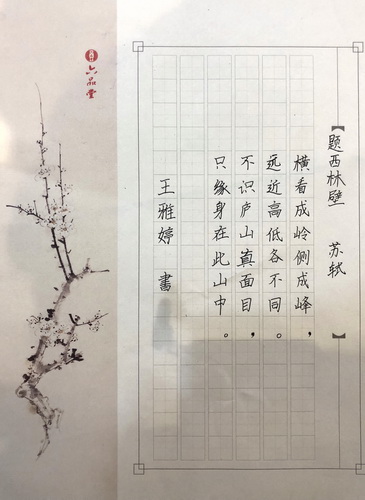 六品堂
【题西林壁 苏轼】
横看成岭侧成峰，
远近高低各不同。
不识庐山真面目，
只缘身在此山中。
王雅婷 書